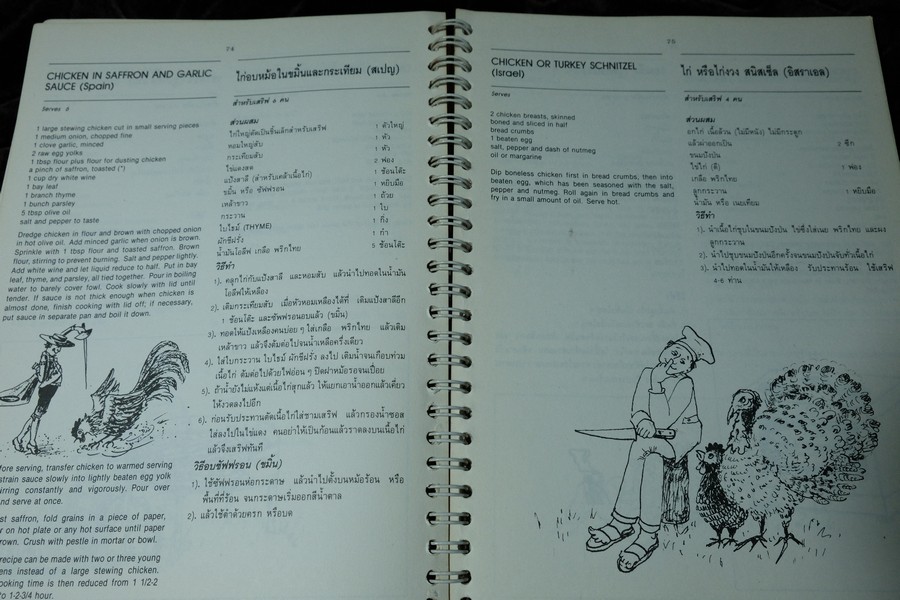 74
CHICKEN IN SAFFRON AND GARLIC
SAUCE (Spain)
Serves 8
1 large stewing chicken cut in small serving pieces
1 medium onion, chopped fine
1 clove garlic, minced
2 raw egg yolks
1 tbsp flour plus flour for dusting chicken
a pinch of saffron, toasted (*)
1 cup dry white wine
1 bay leaf
1 branch thyme
1 bunch parsley
5 tbsp olive oil
salt and pepper to taste
Dredge chicken in flour and brown with chopped onion
in hot olive oil. Add minced garlic when onion is brown.
Sprinkle with 1 tbsp flour and toasted saffron. Brown
flour, stirring to prevent burning. Salt and pepper lightly.
Add white wine and let liquid reduce to half. Put in bay
leaf, thyme, and parsley, all tied together. Pour in boiling
water to barely cover fowl. Cook slowly with lid until
tender. If sauce is not thick enough when chicken is
almost done, finish cooking with lid off; if necessary,
put sauce in separate pan and boil it down.
fore serving, transfer chicken to warmed serving
strain sauce slowly into lightly beaten egg yolk
irring constantly and vigorously. Pour over
nd serve at once.
st saffron, fold grains in a piece of paper,
on hot plate or any hot surface until paper
rown. Crush with pestle in mortar or bowl.
recipe can be made with two or three young
ens instead of a large stewing chicken.
ooking time is then reduced from 1 1/2-2
to 1-2-3/4 hour.
ไก่อบหม้อในขมิ้นและกระเทียม (สเปญ)
สำหรับเสริฟ ๘ คน
ส่วนผสม
ไก่ใหญ่ตัดเป็นชิ้นเล็กสำหรับเสริฟ 1 ตัวใหญ่
หอมใหญ่สับ 1 หัว
กระเทียมสับ 1 หัว
ไข่แดงสด 2 ฟอง
แป้งสาลี (สำหรับเคล้าเนื้อไก่) 1 ช้อนโต๊ะ
ขมิ้น หรือ ซัฟฟรอน 1 หยิบมือ
เหล้าขาว 1 ถ้วย
กระวาน 1 ใบ
ใบไธม์ (THYME) 1 กิ่ง
ผักชีฝรั่ง 1 กำ
น้ำมันโอลีฟ เกลือ พริกไทย 5 ช้อนโต๊ะ
วิธีทำ
1). คลุกไก่กับแป้งสาลี และหอมสับ แล้วนำไปทอดในน้ำมัน
โอลีฟให้เหลือง
2). เติมกระเทียมสับ เมื่อหัวหอมเหลืองได้ที่ เติมแป้งสาลีอีก
1 ช้อนโต๊ะ และซัฟฟรอนอบแล้ว (ขมิ้น)
3). ทอดให้แป้งเหลืองคนบ่อย ๆ ใส่เกลือ พริกไทย แล้วเติม
เหล้าขาว แล้วจึงต้มต่อไปจนน้ำเหลือครึ่งเดียว
4). ใส่ใบกระวาน ใบไธม์ ผักชีฝรั่ง ลงไป เติมน้ำจนเกือบท่วม
เนื้อไก่ ต้มต่อไปด้วยไฟอ่อน ๆ ปิดฝาหม้อรอจนเปื่อย
5). ถ้าน้ำยังไม่แห้งแต่เนื้อไก่สุกแล้ว ให้แยกเอาน้ำออกแล้วเคี่ยว
ให้งวดลงไปอีก
6). ก่อนรับประทานตัดเนื้อไก่ใส่ชามเสริฟ แล้วกรองน้ำซอส
ใส่ลงไปในไข่แดง คนอย่าให้เป็นก้อนแล้วราดลงบนเนื้อไก่
แล้วจึงเสริฟทันที
วิธีอบซัฟฟรอน (ขมิ้น)
1). ใช้ซัฟฟรอนห่อกระดาษ แล้วนำไปตั้งบนหม้อร้อน หรือ
พื้นที่ที่ร้อน จนกระดาษเริ่มออกสีน้ำตาล
2). แล้วใช้ตำด้วยครก หรือบด
75
CHICKEN OR TURKEY SCHNITZEL
(Israel)
Serves
2 chicken breasts, skinned
boned and sliced in half
bread crumbs
1 beaten egg
salt, pepper and dash of nutmeg
oil or margarine
Dip boneless chicken first in bread crumbs, then into
beaten egg, which has been seasoned with the salt,
pepper and nutmeg. Roll again in bread crumbs and
fry in a small amount of oil. Serve hot.
ไก่ หรือไก่งวง สนิสเซ็ล (อิสราเอล)
สำหรับเสริฟ ๔ คน
ส่วนผสม
อกไก่ เนื้อล้วน (ไม่มีหนัง) ไม่มีกระดูก
แล้วผ่าออกเป็น 2 ซีก
ขนมปังป่น
ไข่ไก่ (ตี) 1 ฟอง
เกลือ พริกไทย
ลูกกระวาน 1 หยิบมือ
น้ำมัน หรือ เนยเทียม
วิธีทำ
1). นำเนื้อไก่ชุบในขนมปังป่น ไข่ซึ่งใส่เนย พริกไทย และผง
ลูกกระวาน
2). นำไปชุบขนมปังป่นอีกครั้งจนขนมปังป่นจับทั่วเนื้อไก่
3). นำไปทอดในน้ำมันให้เหลือง รับประทานร้อน ใช้เสริฟ
4-6 ท่าน